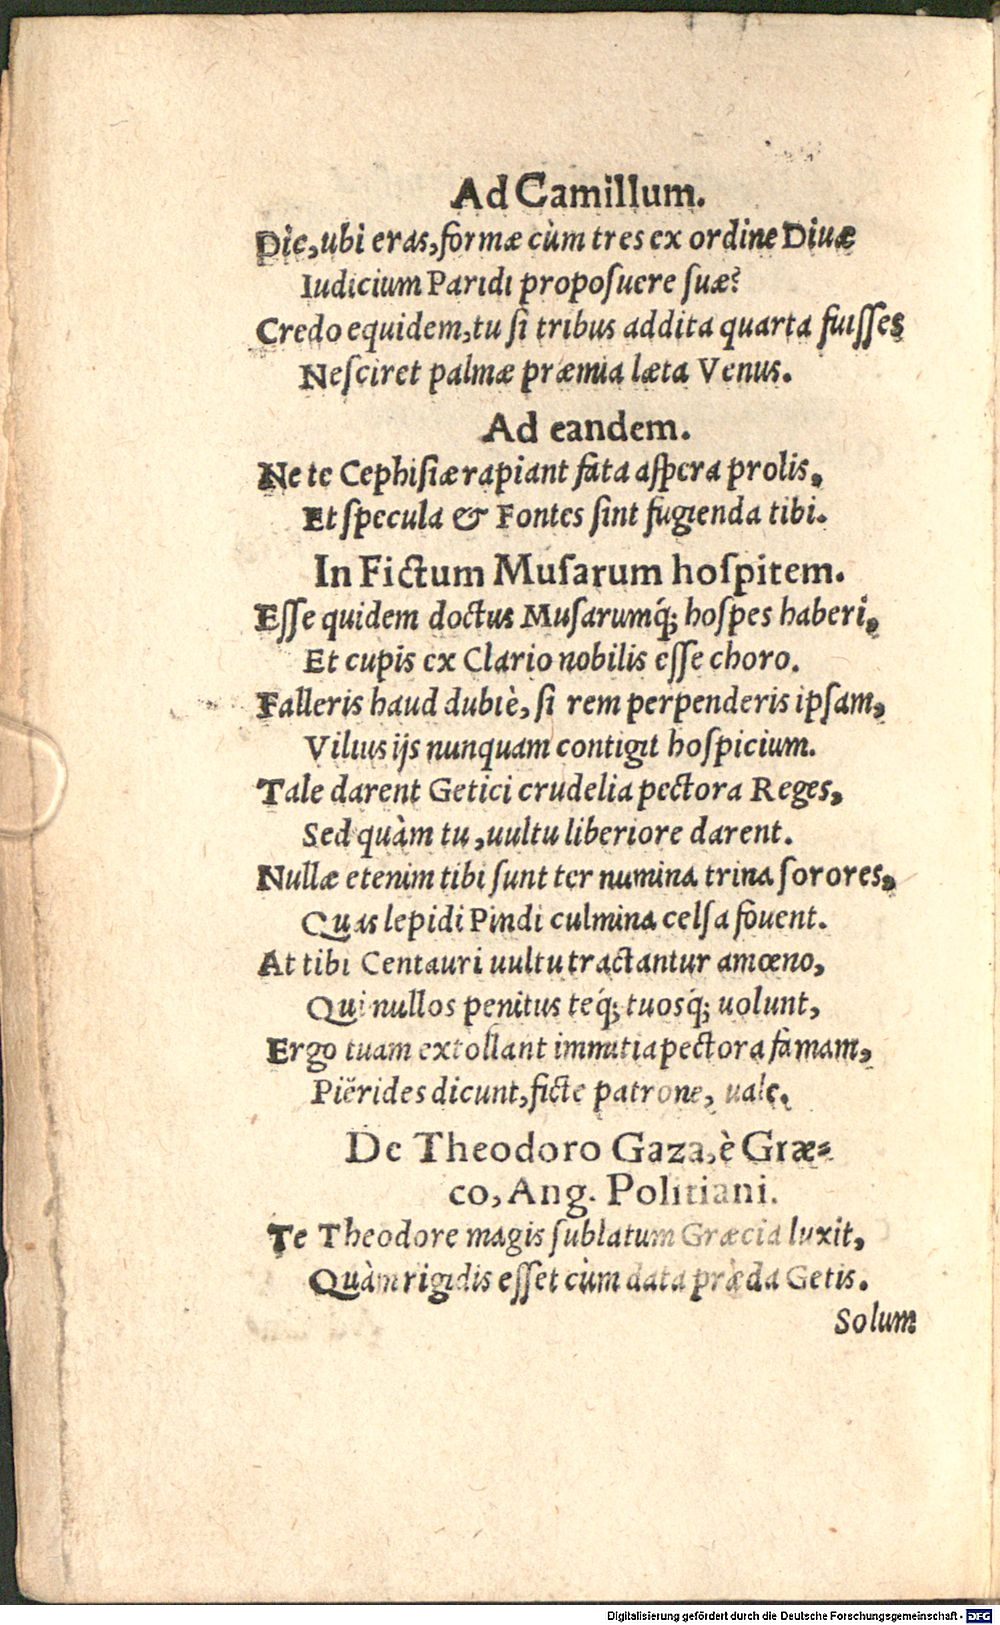 Ad Camillum.
Dic, ubi eras, formæ cùm tres ex ordine Diuæ
Iudicium Paridi proposuere suæ?
Credo equidem, tu si tribus addita quarta fuisses
Nesciret palmæ præmia læta Venus.
Ad eandem.
Ne te Cephisiæ rapiant fata aspera prolis,
Et specula & Fontes sint fugienda tibi.
In Fictum Musarum hospitem.
Esse quidem doctus Musarumq́; hospes haberi,
Et cupis ex Clario nobilis esse choro.
Falleris haud dubiè, si rem perpenderis ipsam,
Vilius ijs nunquam contigit hospicium.
Tale darent Getici crudelia pectora Reges,
Sed quàm tu, uultu liberiore darent.
Nullæ etenim tibi sunt ter numina trina sorores,
Quas lepidi Pindi culmina celsa fouent.
At tibi Centauri uultu tractantur amœno,
Qui nullos penitus teq́; tuosq́; uolunt,
Ergo tuam extollant immitia pectora famam,
Piërides dicunt, ficte patrone, uale.
De Theodoro Gaza, è Græ=
co, Ang. Politiani.
Te Theodore magis sublatum Græcia luxit,
Quàm rigidis esset cùm data præda Getis.
Solum
Digitalisierung gefördert durch die Deutsche Forschungsgemeinschaft - DFG